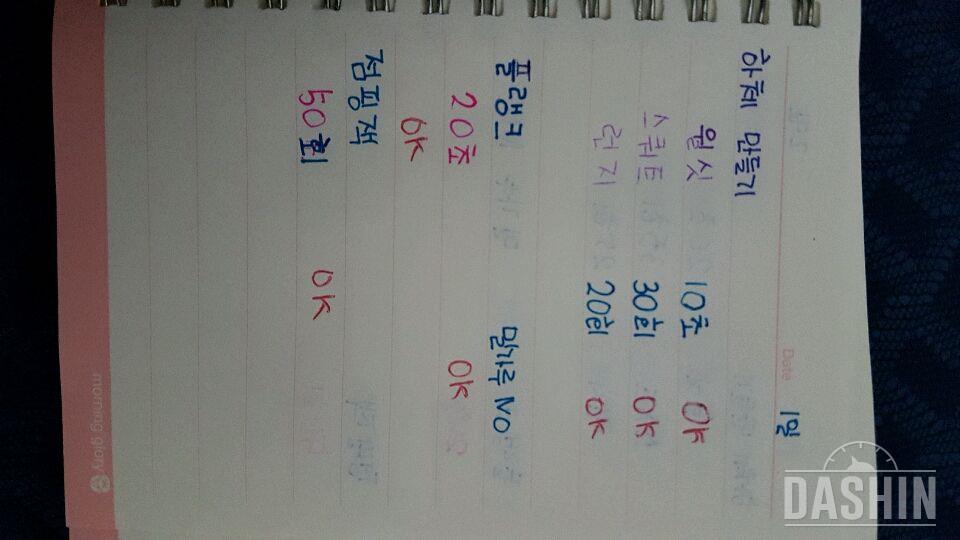 Date 1일
하체 만들기
월싯 10초 OK
스쿼트 30회 OK
런지 20회 OK
플랭크 밀가루 NO
20초 OK
OK
점핑잭
50회 OK
morning glory
DASHIN